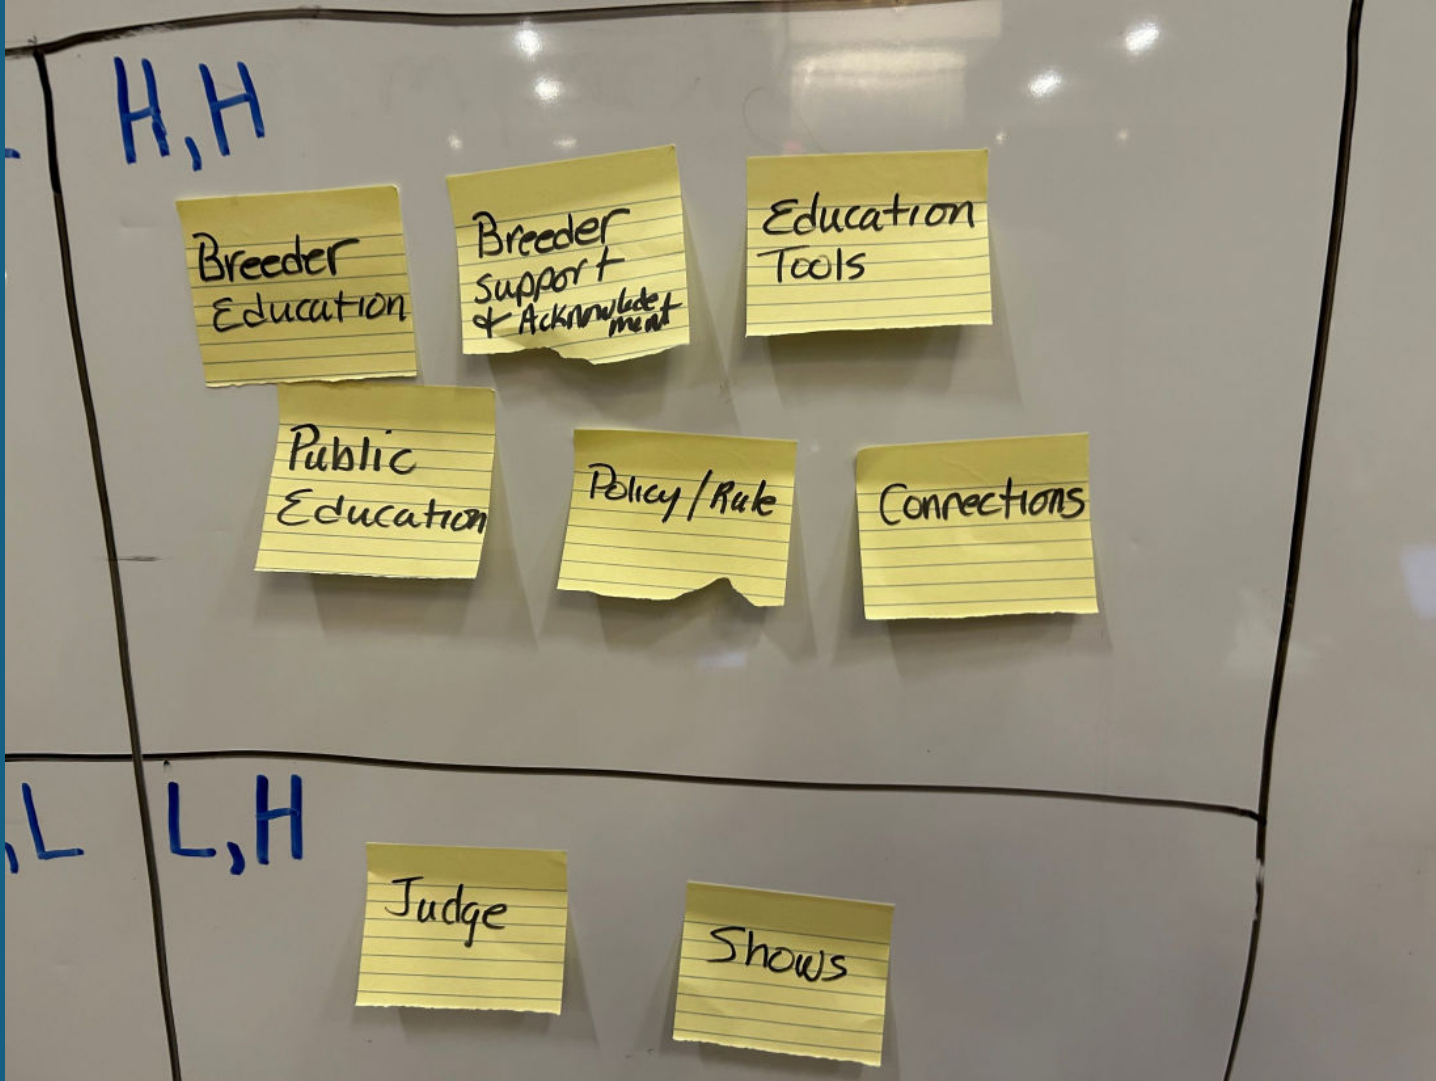 H,H
Breeder
Education
Breeder
support
& Acknowledge
ment
Education
Tools
Public
Education
Policy/Rule
Connections
,L
L,H
Judge
Shows